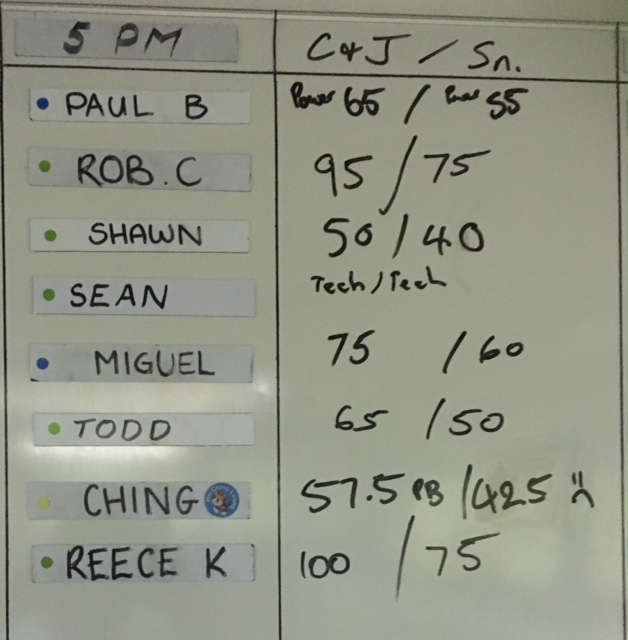 5 PM C&J / Sn.
PAUL B Power 65 / Power 55
ROB.C 95 / 75
SHAWN 50 / 40
SEAN Tech / Tech
MIGUEL 75 / 60
TODD 65 / 50
CHING 57.5 PB / 42.5
REECE K 100 / 75